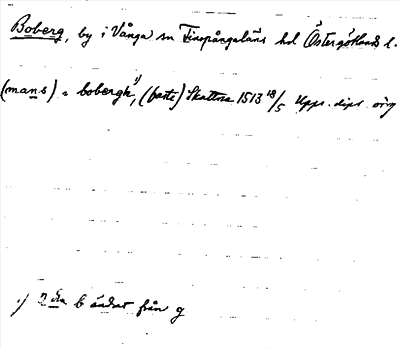 Boberg, by i Vånga sn Finspångaläns hd Östergötlands l.
(mans) a bobergh¹⁾, (faste) Skattna 1513 18/5 Upps. dipl. orig
¹⁾ 2dra b ändrat från g